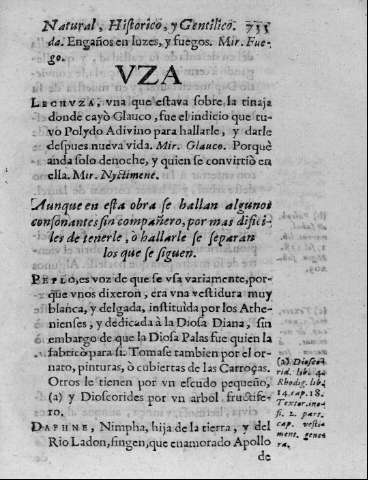 Natural, Historico, y Gentilico. 735
da. Engaños en luzes, y fuegos. Mir. Fue-
go.
VZA
LECHVZA, vna que estava sobre la tinaja
donde cayò Glauco, fue el indicio que tu-
vo Polydo Adivino para hallarle, y darle
despues nueva vida. Mir. Glauco. Porquè
anda solo denoche, y quien se convirtiò en
ella. Mir. Nyctimene.
Aunque en esta obra se hallan algunos
consonantes sin compañero, por mas difici-
les de tenerle, ò hallarle se separan
los que se siguen.
PEPLO, es voz de que se vsa variamente, por-
que vnos dixeron, era vna vestidura muy
blanca, y delgada, instituida por los Athe-
nienses, y dedicada à la Diosa Diana, sin
embargo de que la Diosa Palas fue quien la
fabricò para si. Tomase tambien por el or-
nato, pinturas, ò cubiertas de las Carroças.
Otros le tienen por vn escudo pequeño,
(a) y Dioscorides por vn arbol fructife-
ro.
DAPHNE, Nimpha, hija de la tierra, y del
Rio Ladon, fingen, que enamorado Apollo
de
(a) Dioscorid. lib. 4.
Rhodig. lib.
14. cap. 18.
Textor. in o-
fi. 2. part.
cap. vestia
ment. gener
ra.